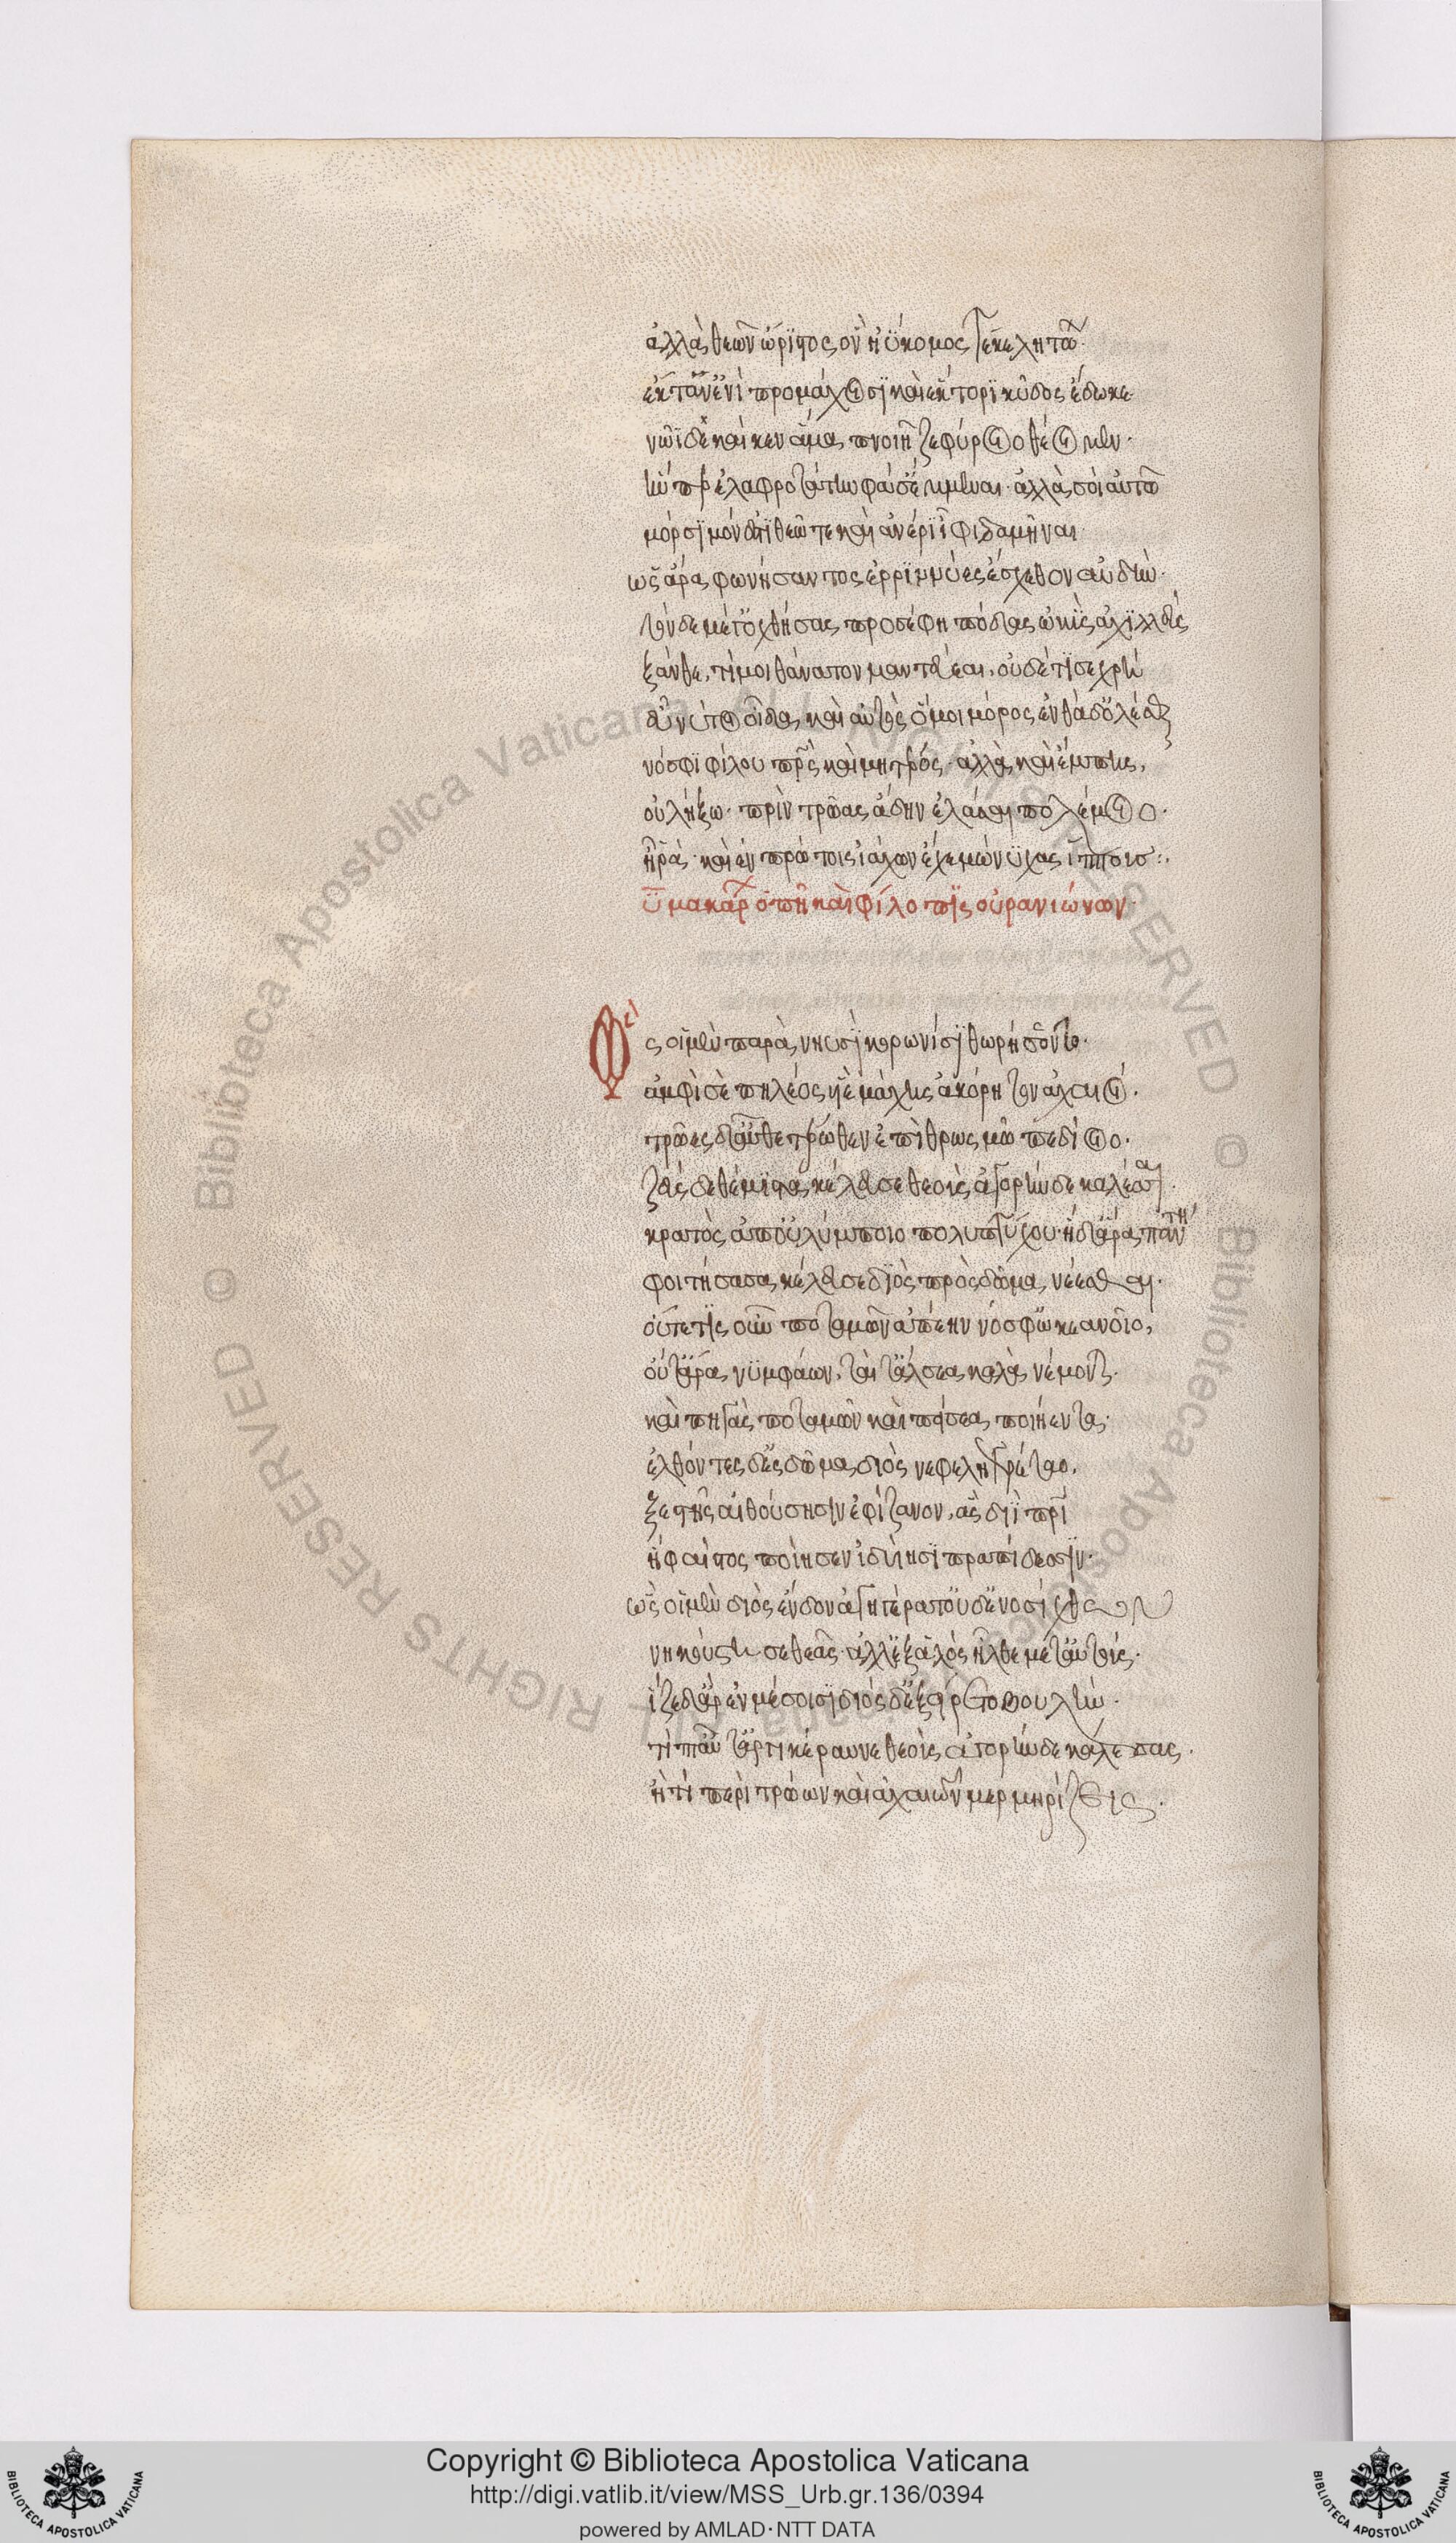 ἀλλὰ θεῶν ὤριστος ὃν ἠΰκομος τέκε λητώ·
ἔκταν ἐνὶ προμάχοισϊ καὶ ἕκτορϊ κῦδος ἔδωκε·
νῶϊ δὲ καί κεν ἅμα πνοιῇ ζεφύροιο θέοιμεν·
ἥν περ ἐλαφροτάτην φάσ' ἔμμεναι· ἀλλὰ σοὶ αὐτῷ
μόρσϊμόν ἐστϊ θεῷ τε καὶ ἀνέρϊ ἶφι δαμῆναι
ὣς ἄρα φωνήσαντος ἐρϊννύες ἔσχεθον αὐδήν·
τὸν δὲ μέγ' ὀχθήσας προσέφη πόδας ὠκὺς ἀχϊλλεύς
ξάνθε, τί μοι θάνατον μαντεύεαι, οὐδέ τϊ σε χρή
εὖ νύ τοι οἶδα καὶ αὐτὸς ὅ μοι μόρος ἐνθάδ' ὀλέσθαι
νόσφϊ φίλου πρς καὶ μητρός· ἀλλὰ καὶ ἔμπης,
οὐ λήξω· πρὶν τρῶας ἄδην ἐλάσαι πολέμοιο·
ἦ ῥά· καὶ ἐν πρώτοις ἰάχων ἔχε μώνϋχας ἵππους:.
ϋ μακάρ
ὣς οἱ μὲν παρὰ νηυσὶ κορωνίσϊ θωρήσσοντο·
ἀμφὶ σὲ πηλέος υἱὲ μάχης ἀκόρητον ἀχαιοί·
τρῶες δ' αὖθ' ἑτέρωθεν ἐπὶ θρωσμῷ πεδίοιο·
ζεὺς δὲ θέμϊστα κέλευσε θεοὺς ἀγορήνδε καλέσσαι·
κρατὸς ἀπ' οὐλύμποιο πολυπτύχου· ἡ δ' ἄρα πάντη
φοιτήσασα κέλευσε δϊὸς πρὸς δῶμα νέεσθαι·
οὔτέ τϊς οὖν ποταμῶν ἀπέην νόσφ' ὠκεανοῖο,
οὔτ' ἄρα νϋμφάων, ταί τ' ἄλσεα καλὰ νέμονται·
καὶ πηγὰς ποταμῶν καὶ πίσεα ποιήεντα·
ἐλθόντες δ' ἐς δῶμα διὸς νεφεληγερέταο,
ξεστῇς αἰθούσησϊν ἐφίζανον, ἃς διῒ πρί
ἥφαιστος ποίησεν ἰδυίησϊ πραπίδεσσϊν·
ὣς οἱ μὲν διὸς ἔνδον ἀγηγέρατ' οὐδ' ἐνοσίχθων
νηκούστησε θεᾶς· ἀλλ' ἐξ ἁλὸς ἦλθε μετ' αὐτούς·
ἷζε δ' ἄρ' ἐν μέσοισϊ διὸς δ' ἐξείρετο βουλήν·
τί πτ' αὖτ' ἀργικέραυνε θεοὺς ἀγορήνδε κάλεσσας·
ἦ τι περὶ τρώων καὶ ἀχαιῶν μερμηρίζεις·
Copyright © Biblioteca Apostolica Vaticana
http://digi.vatlib.it/view/MSS_Urb.gr.136/0394
powered by AMLAD·NTT DATA